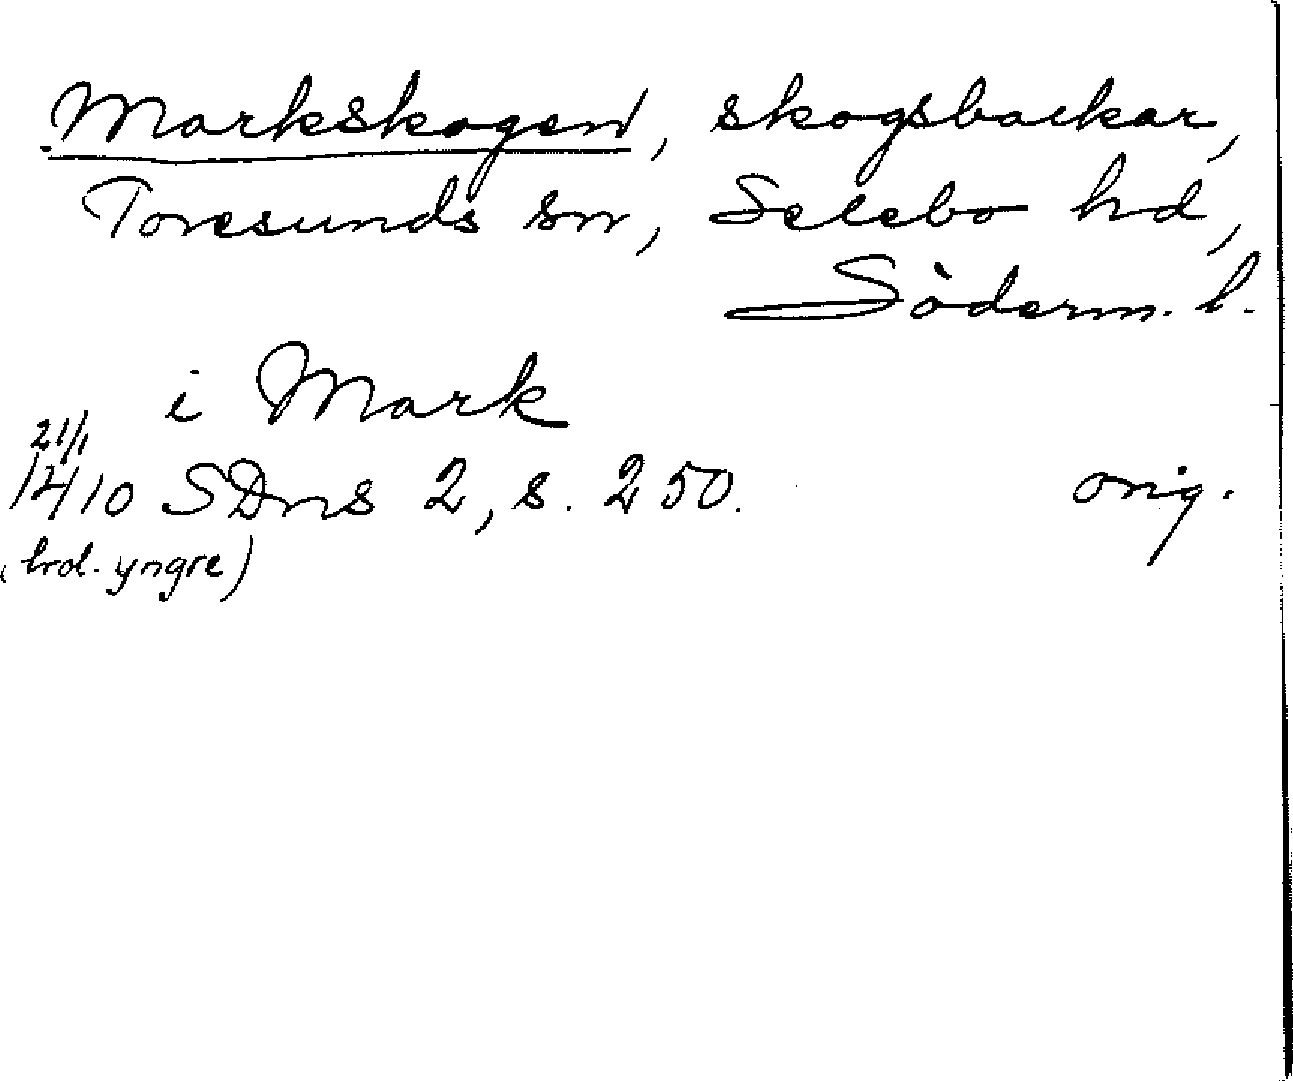 Markskogen, skogsbackar,
Toresunds sn, Selebo hd,
Söderm. l.
i Mark
21/1
1410 SDns 2, s. 250. orig.
(hrd. yngre)